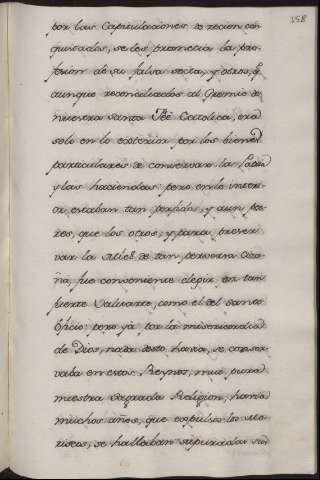 358
por las Capitulaciones de recien con
quistados, se les prometia la pro
fesion de su falsa secta, y otros, q̃
aunque reconciliados al Gremio de
nuestra santa Feè Catolica, era
solo en lo exterior por los bienes
particulares de conservar la Patria
y las haciendas; pero en lo interi-
or estaban tan perfidos, y aun peo
res, que los otros, y para preser
var la Mies de tan perversa Ciza
ña, fue conveniente elegir un tan
fuerte Valuarte, como el del santo
Oficio pero ya por la misericordia
de Dios, nada desto havia, se conser
vaba en estos Reynos, mui pura
nuestra Sagrada Religion, havia
muchos años, que expulsos los Mo
riscos, se hallaban sepurados sus